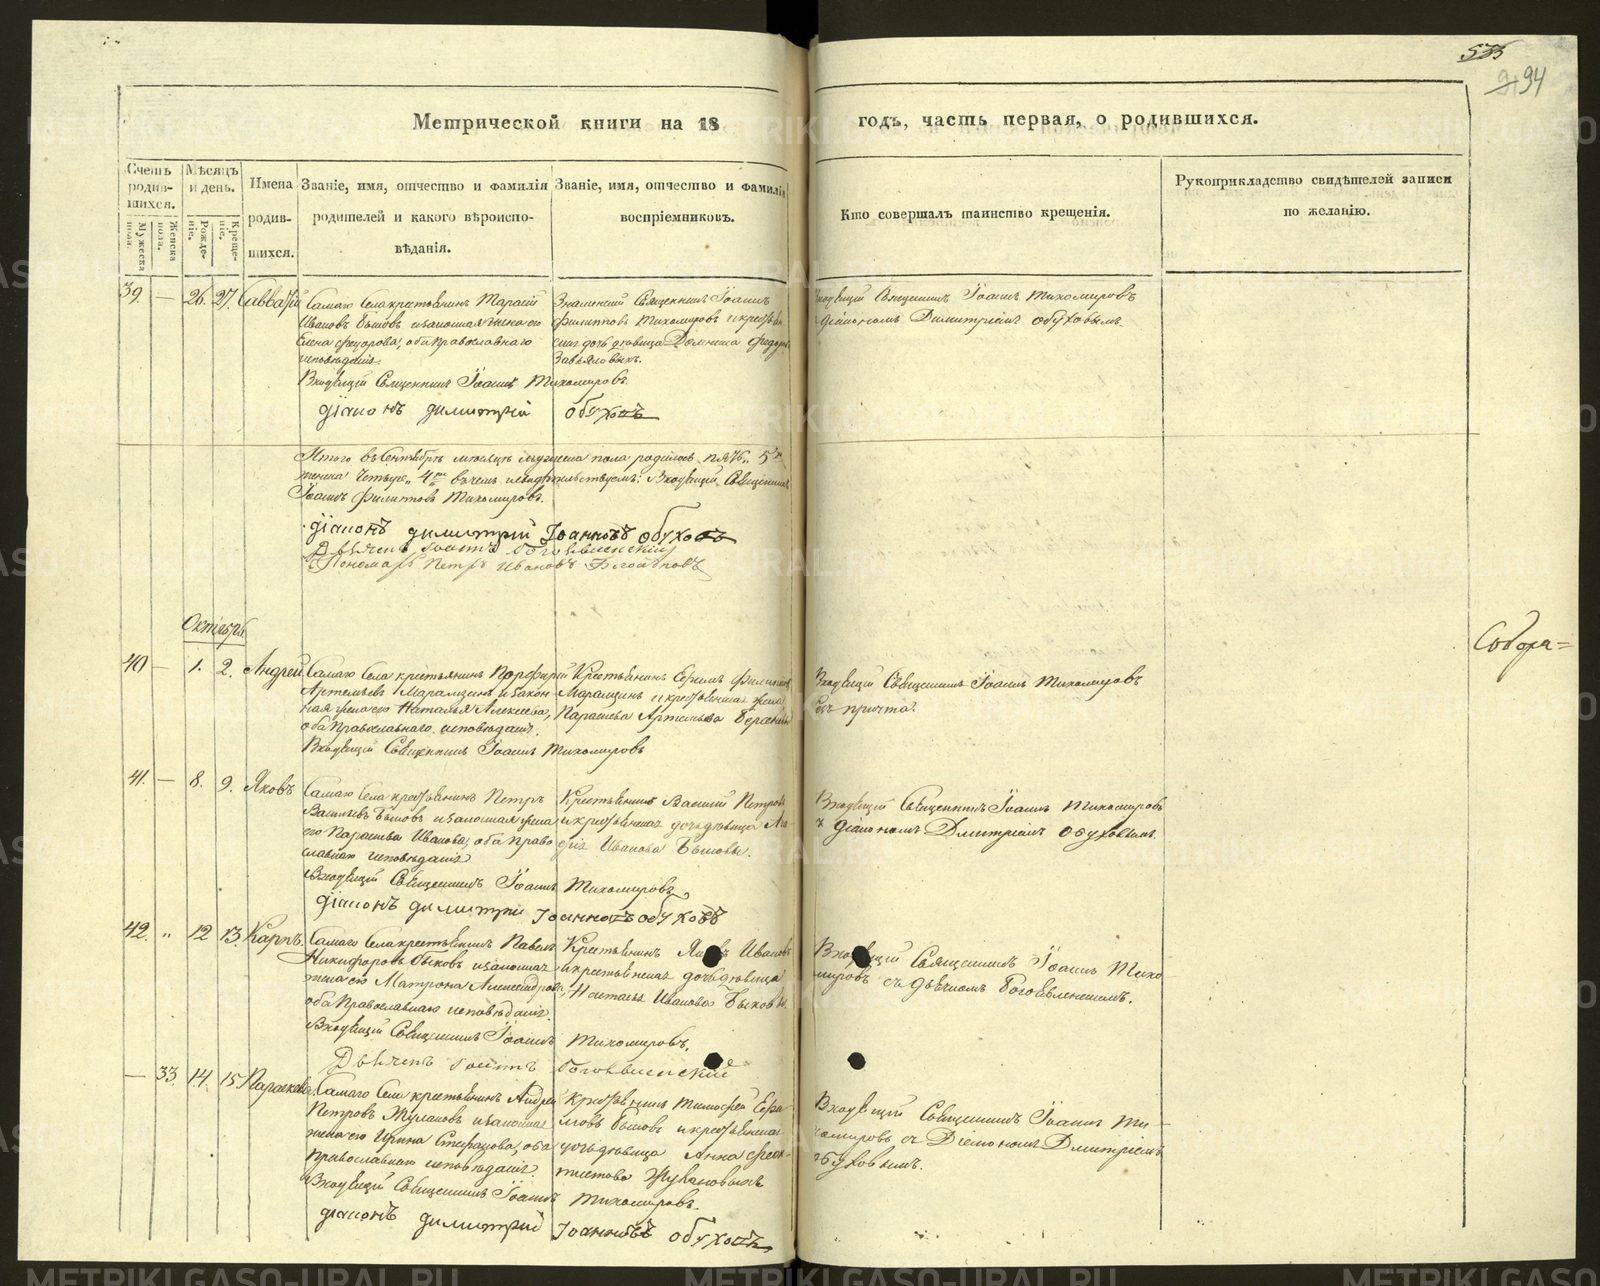 535
94
Метрической книги на 18 годъ, часть первая, о родившихся.
Счетъ родив-шихся.
Мужеска пола.
Женска пола.
Мѣсяцъ и день.
Рожде-ніе.
Креще-ніе.
Имена родив-шихся.
Званіе, имя, отчество и фамилія родителей и какого вѣроиспо-вѣданія.
Званіе, имя, отчество и фамилія воспріемниковъ.
Кто совершалъ таинство крещенія.
Рукоприкладство свидѣтелей записи по желанію.
39. — 26. 27. Савватій
Самаго Села крестьянинъ Тарасій
Ивановъ Быковъ и законная жена его
Елена Федорова, оба Православнаго
исповѣданія.
Знаменскій Священникъ Іоаннъ
Филипповъ Тихомировъ и крестьян
ская дочь дѣвица Домника Федор
Завьяловыхъ.
Входящій Священникъ Іоаннъ Тихомировъ
и діакономъ Димитріемъ Обуховымъ.
Входящій Священникъ Іоаннъ Тихомировъ.
діаконъ димитрій обуховъ
Итого въ Сентябрѣ мѣсяцѣ мужеска пола родилось пять „5ть
женска четыре „4ре въ чемъ и свидѣтельствуемъ: Входящій Священникъ
Іоаннъ Филипповъ Тихомировъ.
діаконъ димитрій Іоанновъ обуховъ
Дьячекъ Іоаннъ Богоявленскій
Пономарь Петръ Ивановъ
Октябрь
40 — 1. 2. Андрей
Самаго Села крестьянинъ Порфирій
Артемьевъ Марамзинъ и закон
ная жена его Наталья Алексѣева,
оба Православнаго исповѣданія.
Крестьянинъ Филиппов
Марамзинъ и крестьянская жена
Параскева Артемьева
Входящій Священникъ Іоаннъ Тихомировъ
безъ причта.
Входящій Священникъ Іоаннъ Тихомировъ
Собора=
41. — 8. 9. Яковъ
Самаго Села крестьянинъ Петръ
Васильевъ Быковъ и законная жена
его Параскева Иванова, оба Право
славнаго исповѣданія
Крестьянинъ Василій Петровъ
и крестьянская дочь дѣвица
Иванова Быковы.
Входящій Священникъ Іоаннъ Тихомировъ
и діакономъ Дмитріемъ Обуховымъ.
Входящій Священникъ Іоаннъ Тихомировъ,
діаконъ димитрій Іоанновъ обуховъ
42. „ 12 13. Карпъ.
Самаго Села крестьянинъ Павелъ
Никифоровъ Быковъ и законная
жена его Матрона Александрова
оба Православнаго исповѣданія.
Крестьянинъ Ивановъ
и крестьянская дочь дѣвица
Настасья Иванова Быковы.
Входящій Священникъ Іоаннъ Тихо
мировъ съ дьячкомъ Богоявленскимъ.
Входящій Священникъ Іоаннъ Тихомировъ.
Дьячекъ Іоаннъ Богоявленскій
— 33. 14. 15. Параскева
Самаго Села крестьянинъ Андрей
Петровъ Жулановъ и законная
жена его Ирина Степанова, оба
Православнаго исповѣданія.
Крестьянинъ Тимофей
Быковъ и крестьянская
дочь дѣвица Анна Феок-
тистова Жулановыхъ
Входящій Священникъ Іоаннъ Ти-
хомировъ съ Діакономъ Дмитріемъ
Обуховымъ.
Входящій Священникъ Іоаннъ Тихомировъ.
діаконъ димитрій Іоанновъ обуховъ
METRIKI.GASO-URAL.RU